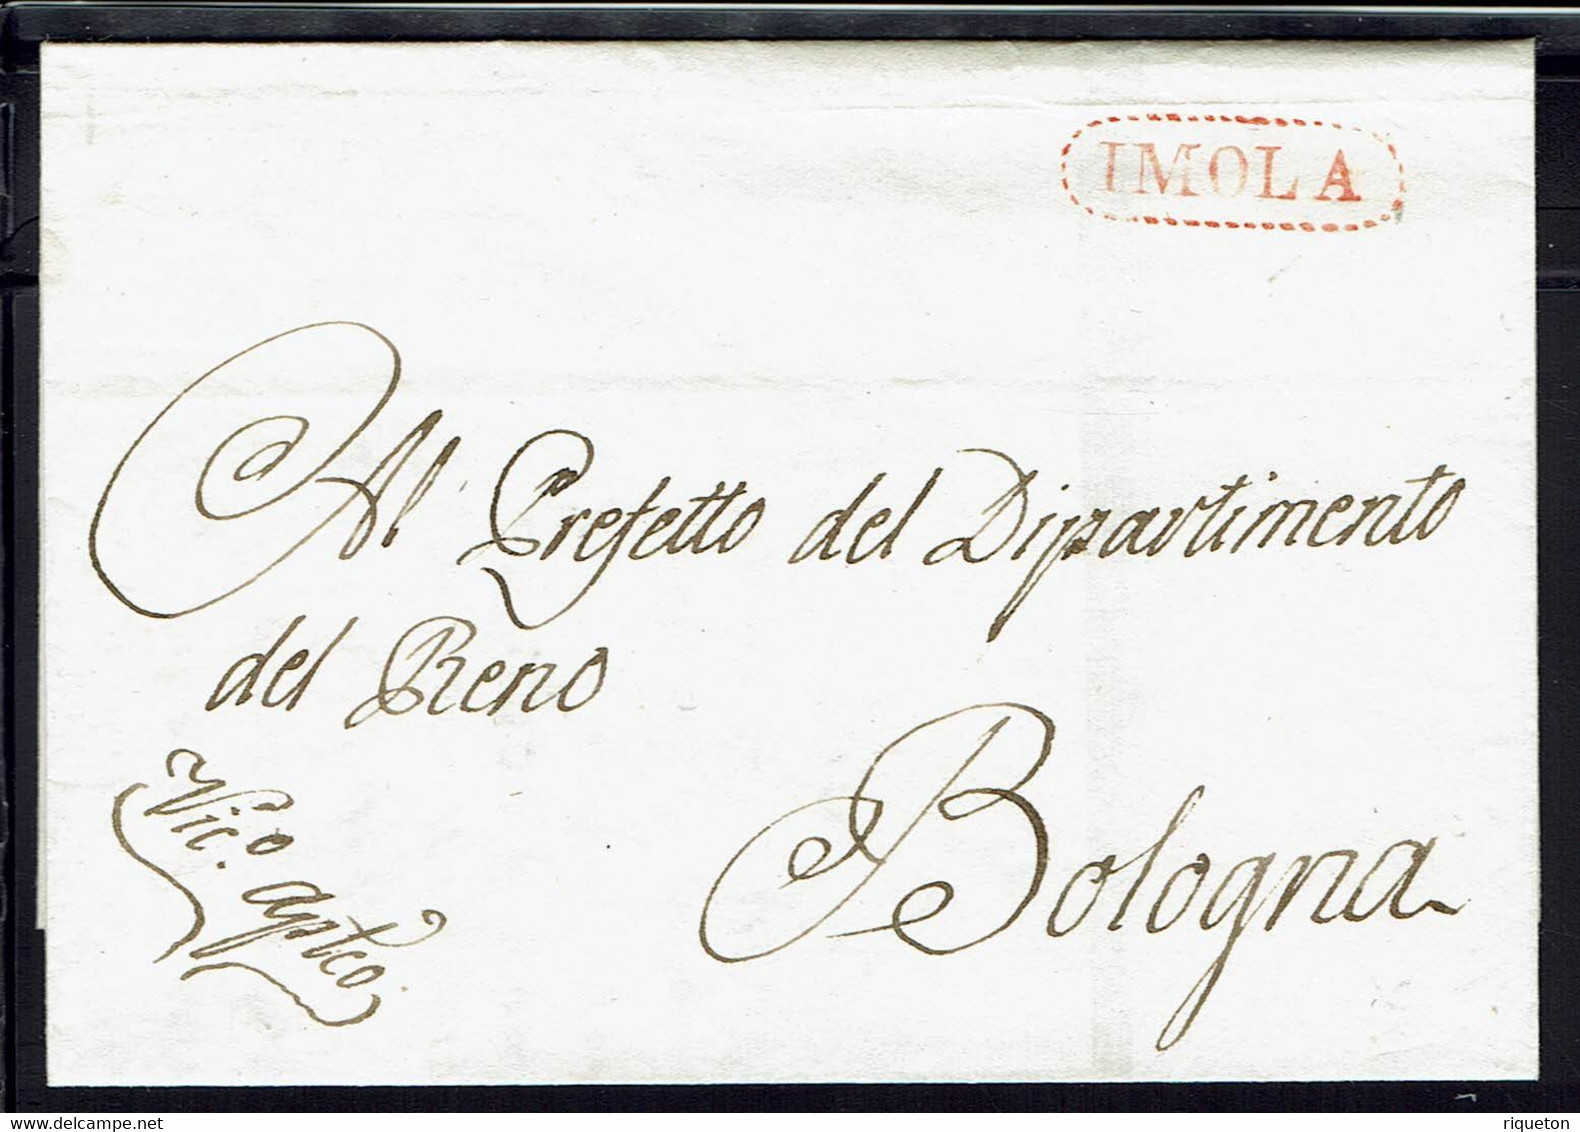 IMOLA
Al Prefetto del Dipartimento
del Reno
Bologna
Vic.o
www.delcampe.net
riqueton